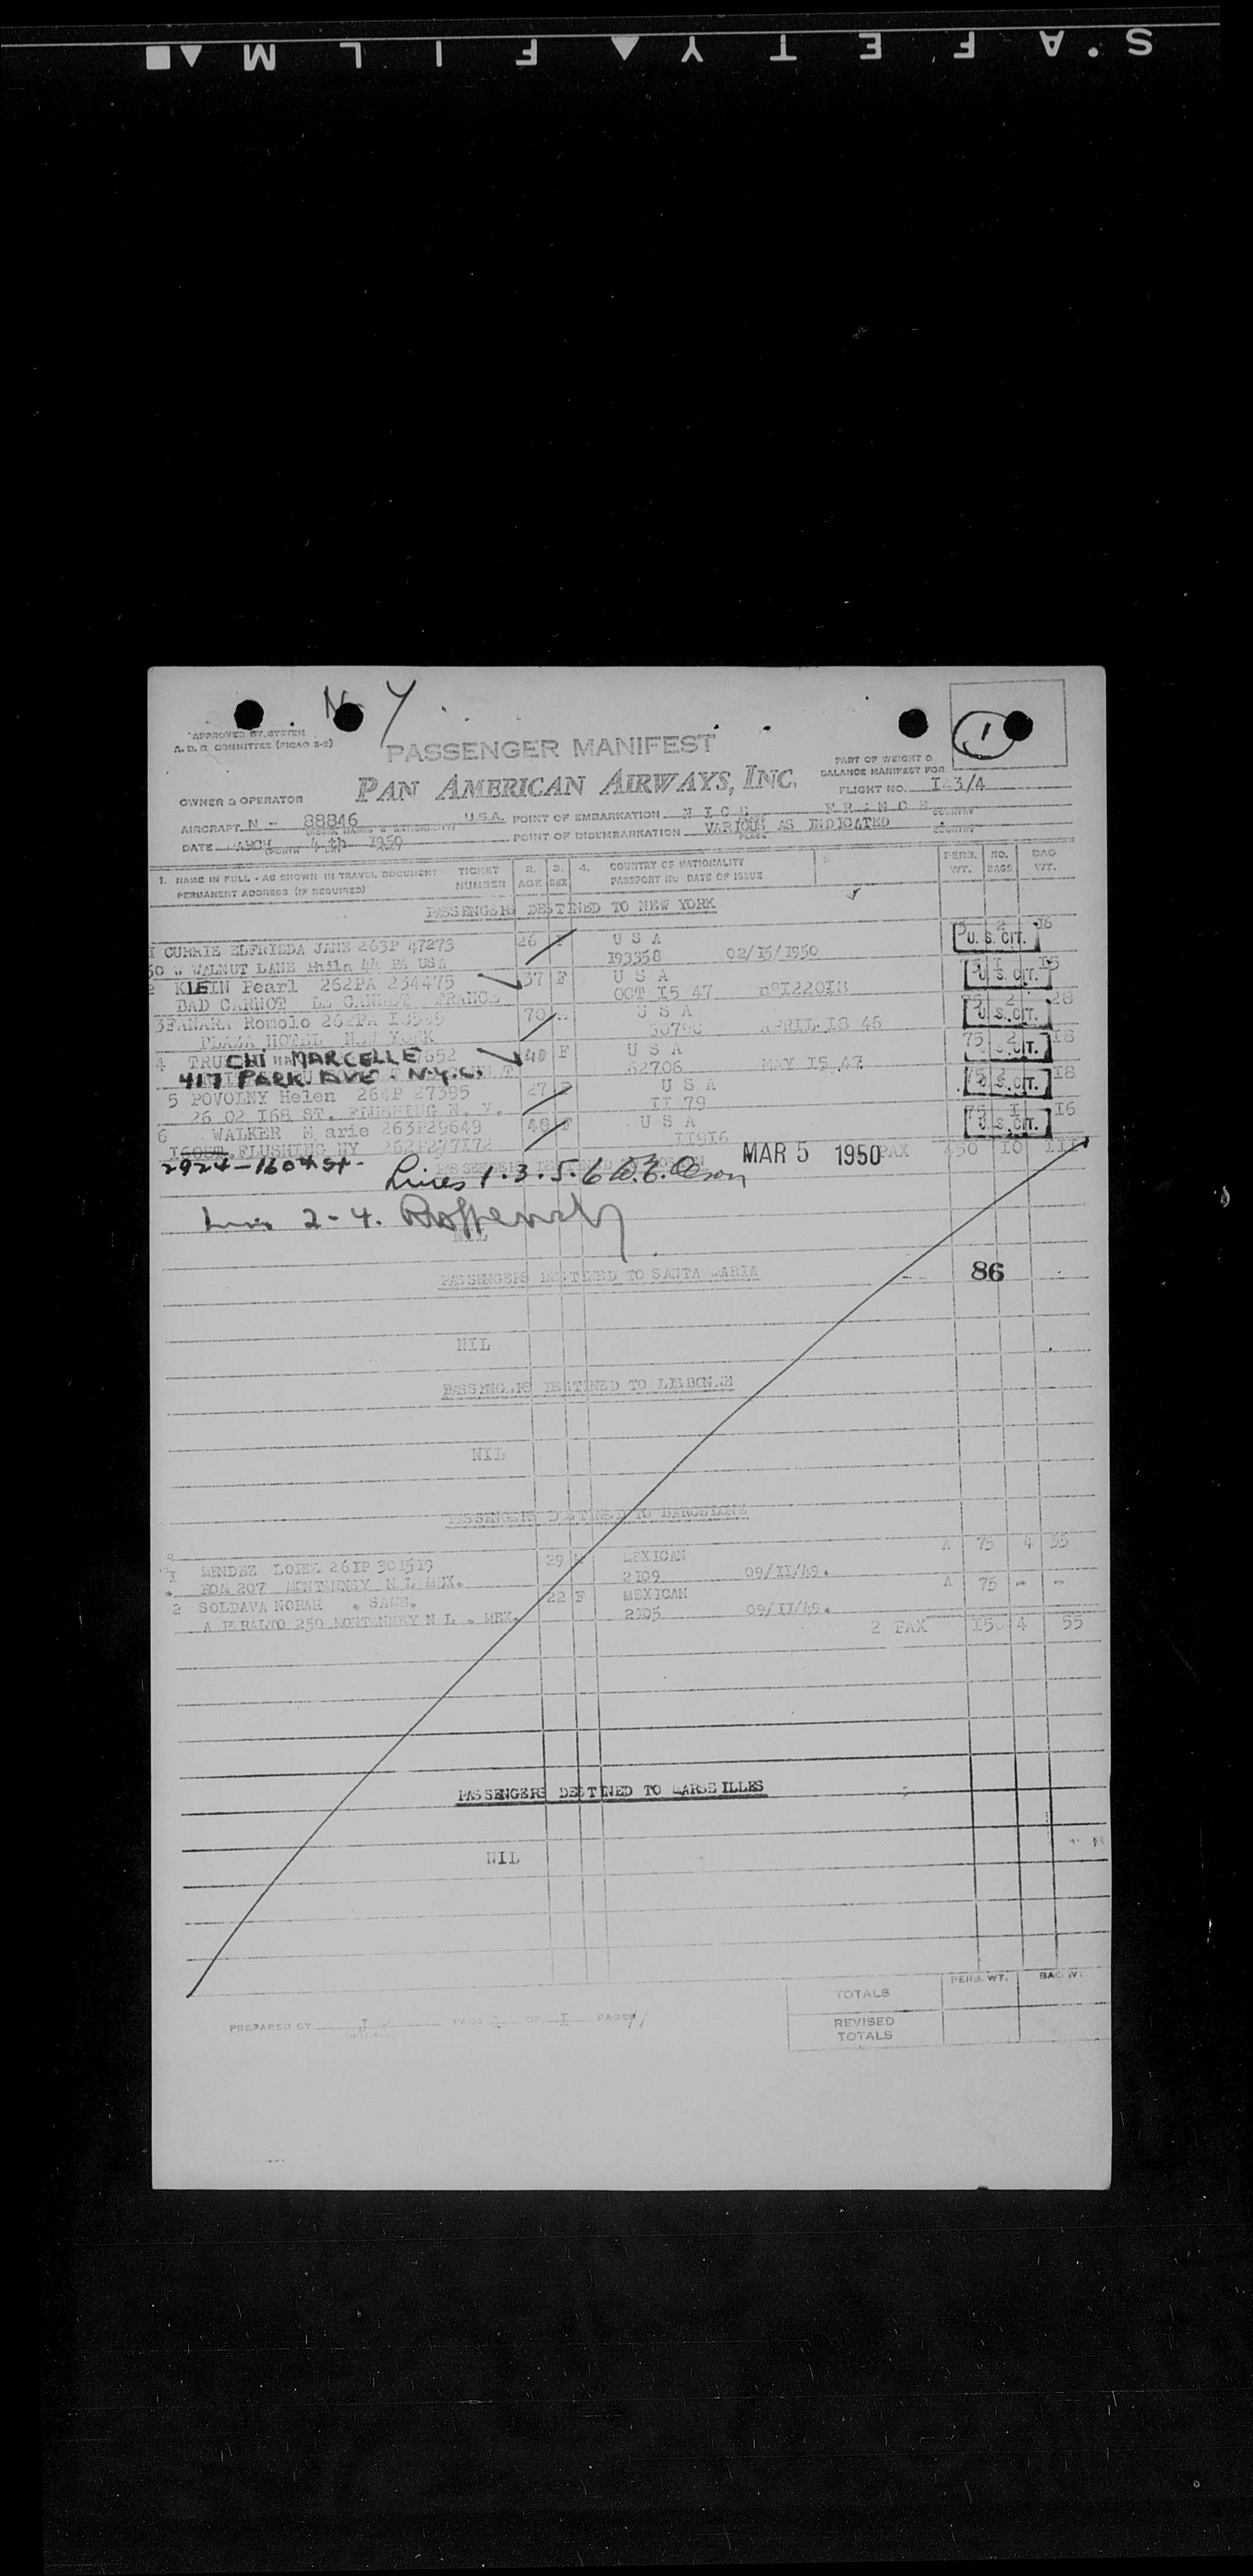 SAFETY FILM
N Y
1
APPROVED BY SYSTEM
A. D. C. COMMITTEE (PICAO 2-2)
PASSENGER MANIFEST
PAN AMERICAN AIRWAYS, INC.
PART OF WEIGHT &
BALANCE MANIFEST FOR
FLIGHT NO. I43/4
OWNER & OPERATOR
AIRCRAFT N - 88846 U.S.A. POINT OF EMBARKATION NICE FRANCE COUNTRY
DATE MARCH 4 th 1950 POINT OF DISEMBARKATION VARIOUS AS INDICATED COUNTRY
PLACE
1. NAME IN FULL - AS SHOWN IN TRAVEL DOCUMENT TICKET NUMBER 2. AGE 3. SEX 4. COUNTRY OF NATIONALITY PERS. WT. NO. BAGS BAG WT.
PERMANENT ADDRESS (IF REQUIRED) PASSPORT NO DATE OF ISSUE
PASSENGERS DESTINED TO NEW YORK
1 CURRIE ELFRIEDA JANE 263P 47273 26 F U S A 2 16
U. S. CIT.
50 W WALNUT LANE Phila 44 PA USA 193358 02/15/1950
2 KLEIN Pearl 262PA 234475 37 F U S A 1 15
U. S. CIT.
BAD CARNOT LE CANNET FRANCE OCT 15 47 n°122018
3 FANARA Romolo 262PA 70 M U S A 75 2 28
U. S. CIT.
PLAZA HOTEL NEW YORK APRIL 18 46
4 TRUCCHI MARCELLE 7652 40 F U S A 75 2 18
U. S. CIT.
417 PARK AVE. N.Y.C. 62706 MAY 15 47
5 POVOLNY Helen 264P 27395 27 F U S A 75 2 18
U. S. CIT.
26 02 168 ST. FLUSHING N. Y. II 79
6 WALKER Marie 263P29649 48 F U S A 75 1 16
U. S. CIT.
160ST. FLUSHING NY 262P277172 11916
2924-160th St. MAR 5 1950 PAX 450 10 111
Lines 1. 3. 5. 6
2 - 4.
NIL
PASSENGERS DESTINED TO SANTA MARIA
86
NIL
PASSENGERS DESTINED TO LISBONNE
NIL
PASSENGERS DESTINED TO BARCELONE
1 MENDEZ LOPEZ 261P 301519 29 M MEXICAN A 75 4 55
ROM 207 MONTENNEY N L MEX. 2109 09/11/49.
2 SOLDAVA NORAH . SAME. 22 F MEXICAN A 75 - -
A PERALTO 250 MONTENNEY N L . MEX. 2105 09/11/49.
2 PAX 150 4 55
PASSENGERS DESTINED TO MARSEILLES
NIL
PERS. WT. BAG WT
TOTALS
REVISED
TOTALS
PREPARED BY PAGE I OF I PAGES